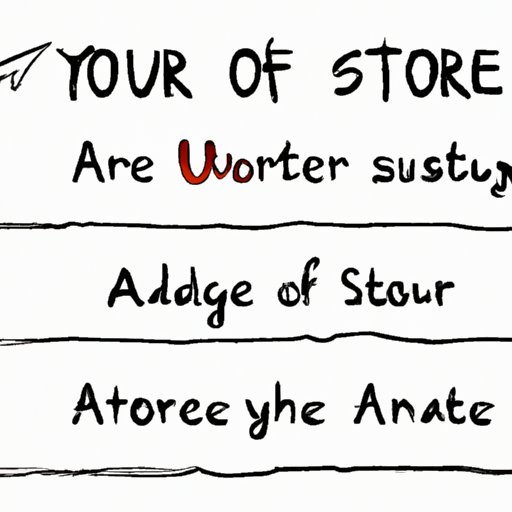 YOUR OF STORE
Are Uvorter sustuy
Addge of Stour
Atoree yhe Anate